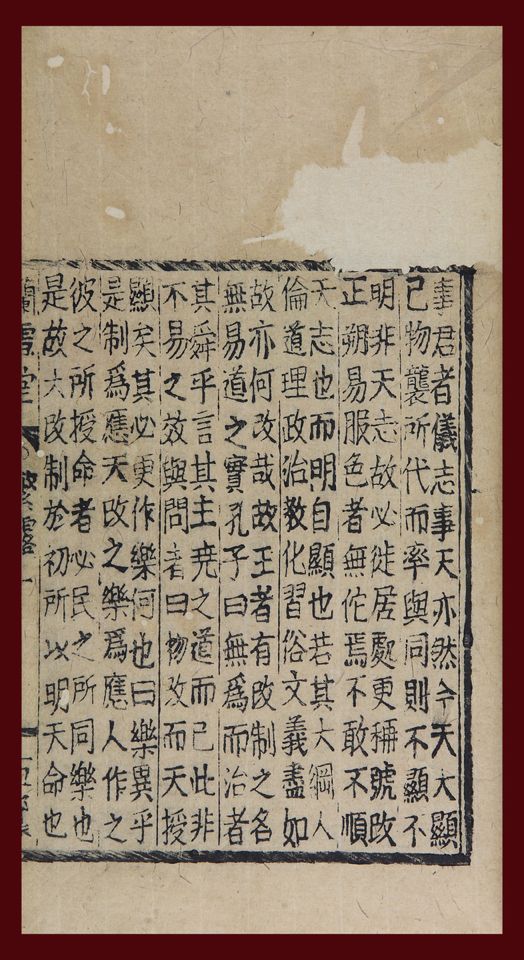 事君者儀志事天亦然今天大顯
已物襲所代而率與同則不顯不
明非天志故必徙居處更稱號改
正朔易服色者無佗焉不敢不順
天志也而明自顯也若其大綱人
倫道理政治教化習俗文義盡如
故亦何改哉故王者有改制之名
無易道之實孔子曰無爲而治者
其舜乎言其主堯之道而已此非
不易之效與問者曰物改而天授
顯矣其必更作樂何也曰樂異乎
是制爲應天改之樂爲應人作之
彼之所授命者必民之所同樂也
是故大改制於初所以明天命也
蘭雪堂 繁露一